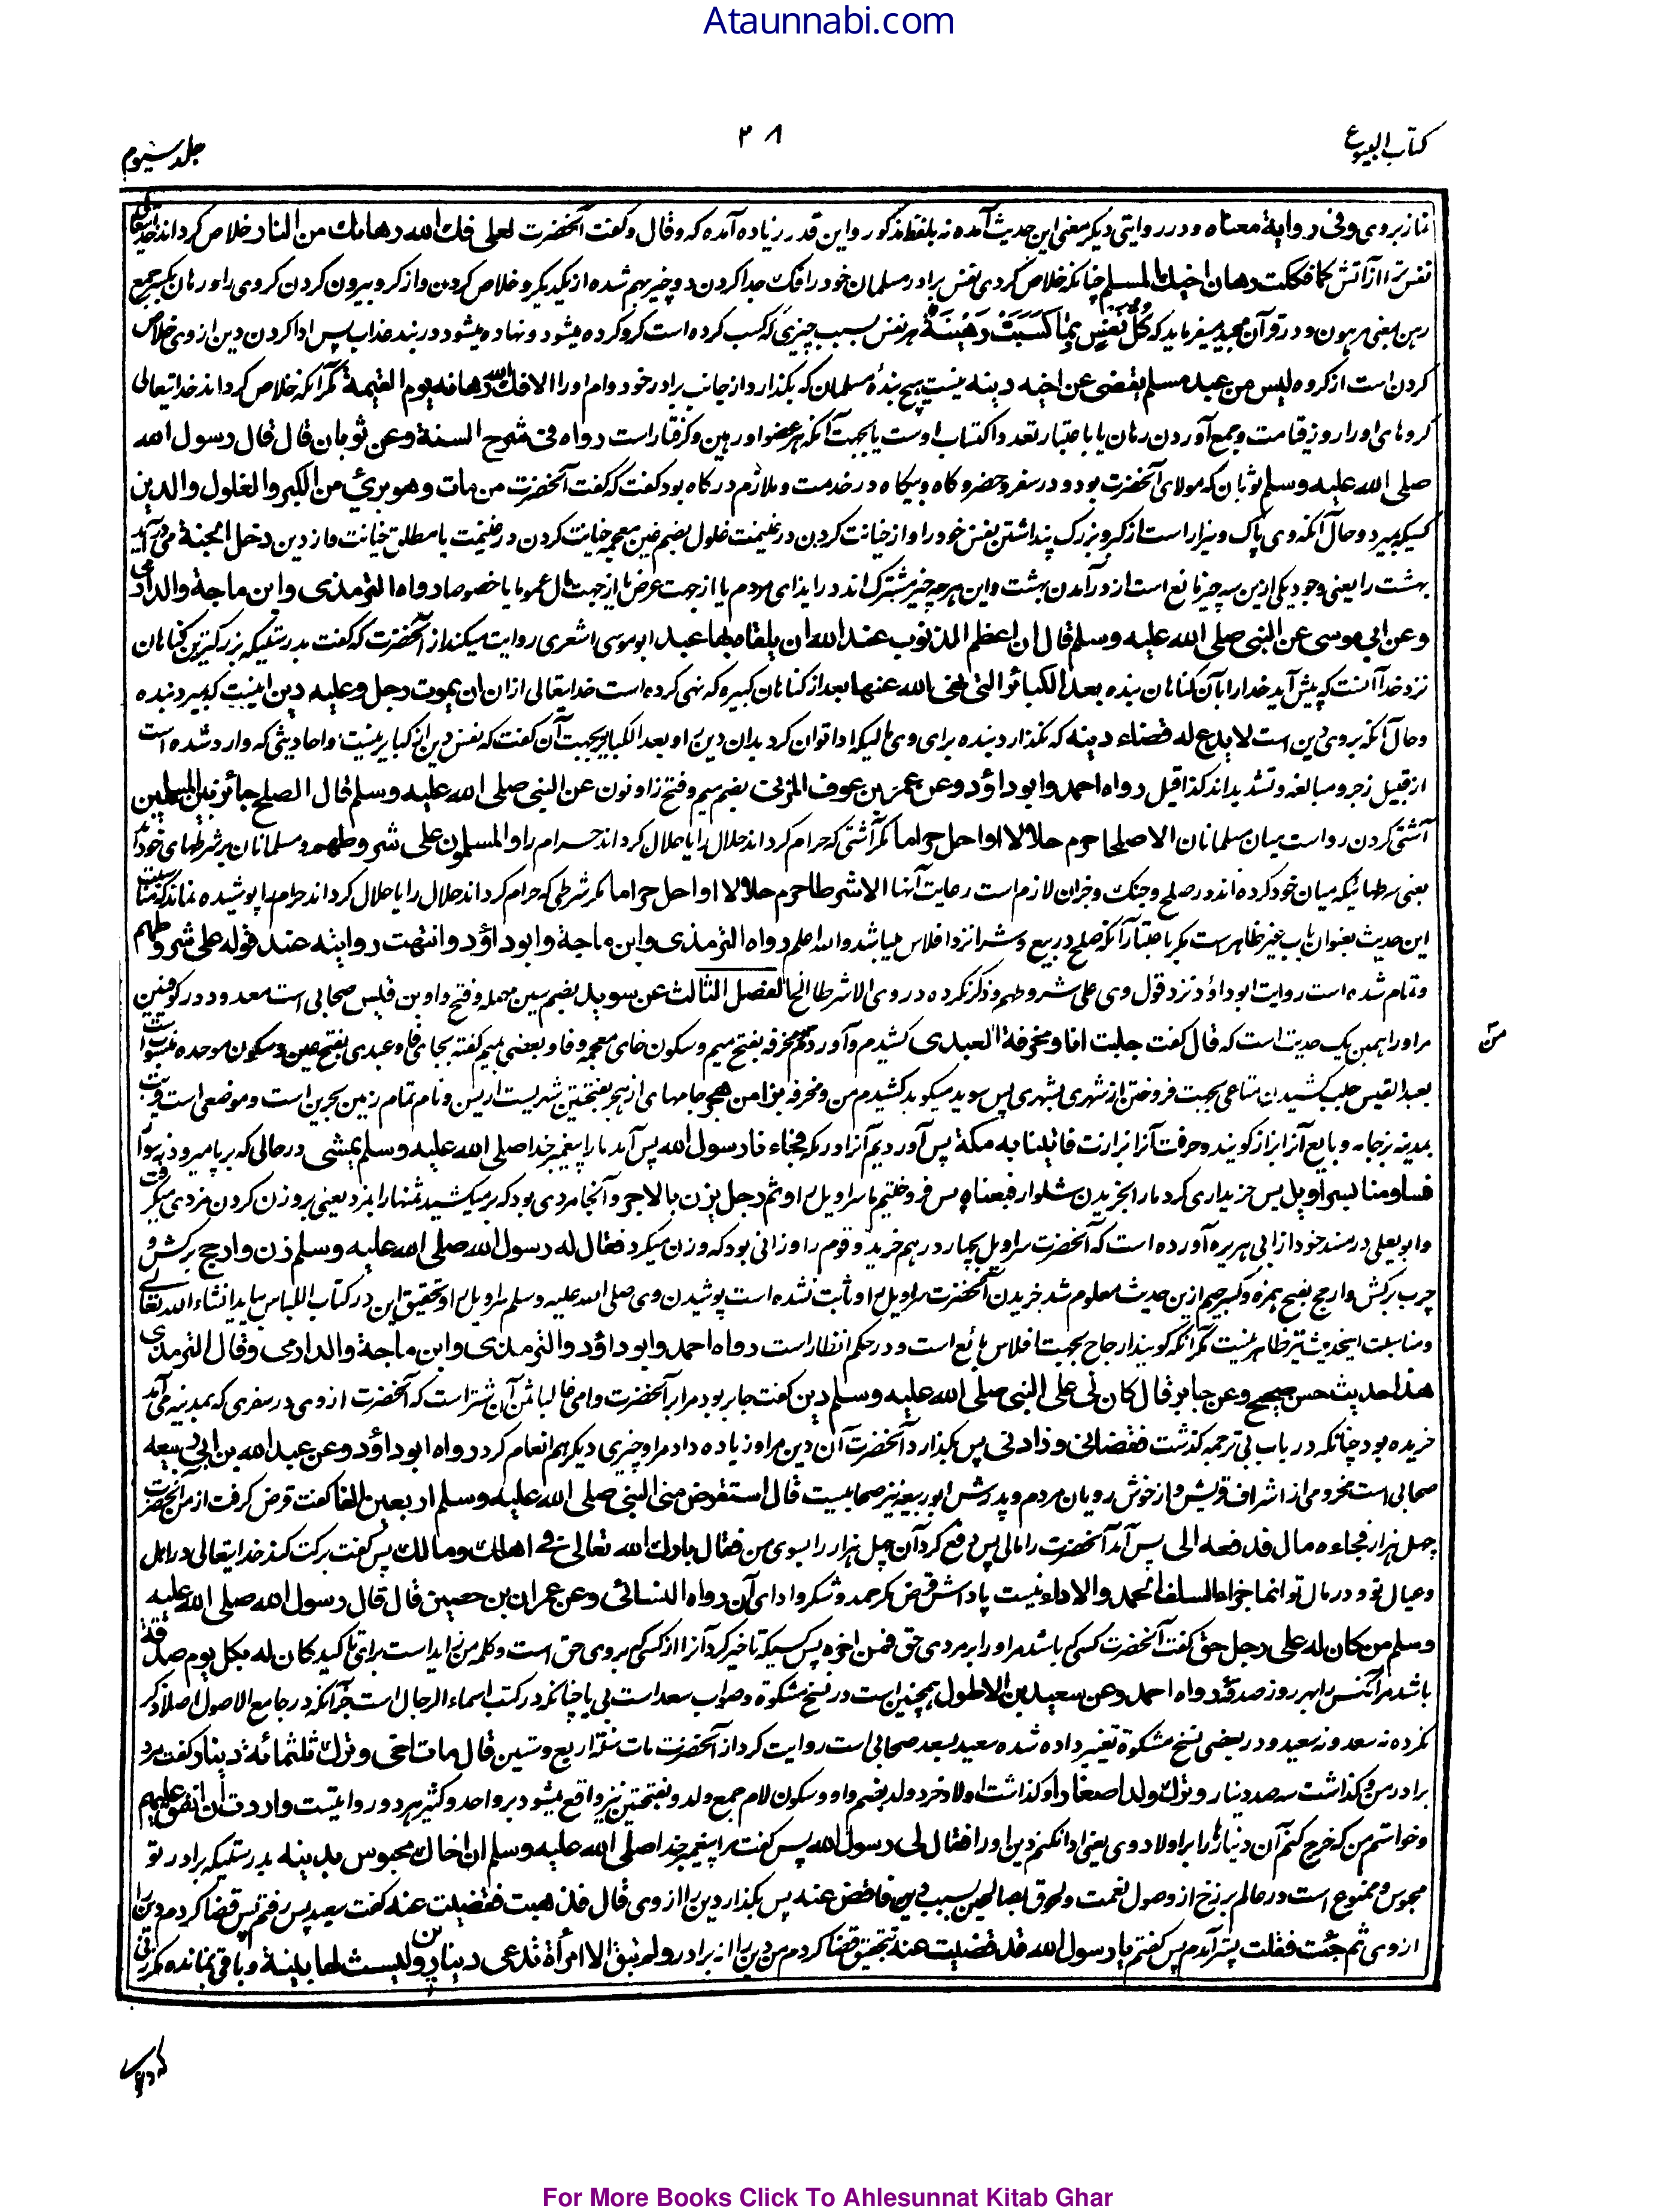 Ataunnabi.com
کتاب البیوع
۳۸
جلد سیوم
نماز بروی وفی روایة معناه و در روایتی دیگر معنی این حدیث آمده نه بلفظ مذکور و این قدر زیاده آمده که وقال و گفت آنحضرت لعلی فك الله رهانك من النار خلاص گرداند خدایتعالی
نفس ترا از آتش كما فككت رهان اخيك المسلم چنانکه خلاص کردی نفس برادر مسلمان خود را فک جدا کردن دو چیز بهم شده از یکدیگر و خلاص کردن و از گرو بیرون کردن گروی را و رهان بکسر جمع
رهن بمعنی مرهون و در قرآن مجید میفرماید که كُلُّ نَفْسٍ بِمَا كَسَبَتْ رَهِينَةٌ هر نفس بسبب چیزی که کسب کرده است گرو کرده میشود و نهاده میشود در بند عذاب پس ادا کردن دین از وی خلاص
کردن است از گرو ه ليس من عبد مسلم يقضى عن اخيه دينه نیست هیچ بندهٔ مسلمان که بگذارد از جانب برادر خود وام او را الا فك الله رهانه يوم القيمة مگر آنکه خلاص گرداند خدایتعالی
گروهای او را روز قیامت و جمع آوردن رهان یا باعتبار تعدد اکتساب اوست یا بجهت آنکه هر عضو او رهین و گرفتار است رواه فى شرح السنة وعن ثوبان قال قال رسول الله
صلى الله عليه وسلم ثوبان که مولای آنحضرت بود و در سفر و حضر و گاه و بیگاه در خدمت و ملازم درگاه بود گفت که گفت آنحضرت من مات وهو برئ من الكبر والغلول والدين
کسیکه بمیرد و حال آنکه وی پاک و بیزار است از کبر و بزرگ پنداشتن نفس خود را و از خیانت کردن در غنیمت غلول بضم غین معجمه خیانت کردن در غنیمت یا مطلق خیانت و از دین دخل الجنة می درآید
بهشت را یعنی وجود یکی ازین سه چیز مانع است از درآمدن بهشت و این هر سه چیز مشترک اند در ایذای مردم یا از جهت عرض یا از جهت مال عموما یا خصوصا رواه الترمذى وابن ماجة والدارمى
وعن ابى موسى عن النبى صلى الله عليه وسلم قال ان اعظم الذنوب عند الله ان يلقاه بها عبد ابو موسی اشعری روایت میکند از آنحضرت که گفت بدرستیکه بزرگترین گناهان
نزد خدا آنست که پیش آید خدا را بآن گناهان بنده بعد الكبائر التى نهى الله عنها بعد از گناهان کبیره که نهی کرده است خدایتعالی از ان ان يموت رجل وعليه دين اینست که بمیرد بنده
و حال آنکه بر وی دین است لا يدع له قضاء دينه که نگذارد بنده برای وی مالیکه ادا توان کرد بدان دین را و بعد الکبائر بجهت آن گفت که نفس دین از کبایر نیست و احادیثی که وارد شده است
از قبیل زجر و مبالغه و تشدید اند کذا قیل رواه احمد وابو داؤد وعن عمرو بن عوف المزنى بضم میم و فتح زا و نون عن النبى صلى الله عليه وسلم قال الصلح جائز بين المسلمين
آشتی کردن رواست میان مسلمانان الا صلحا حرم حلالا او احل حراما مگر آشتی که حرام گرداند حلال را یا حلال گرداند حرام را والمسلمون على شروطهم و مسلمانان بر شرطهای خود اند
یعنی شرطهائیکه میان خود کرده اند در صلح و جنگ و جزان لازم است رعایت آنها الا شرطا حرم حلالا او احل حراما مگر شرطی که حرام گرداند حلال را یا حلال گرداند حرام را پوشیده نماند که مناسبت
این حدیث بعنوان باب غیر ظاهر است مگر باعتبار آنکه صلح در بیع و شرا نزد افلاس میباشد والله اعلم رواه الترمذى وابن ماجة وابو داؤد وانتهت روايته عند قوله على شروطهم
و تمام شده است روایت ابو داؤد نزد قول وی علی شروطهم و ذکر نکرده در وی الا شرطا الخ الفصل الثالث عن سويد بضم سین مهمله و فتح واو بن قيس صحابی است معدود در کوفیین
مر او را همین یک حدیث است که قال گفت جلبت انا ومخرفة العبدى کشیدم و آوردم و مخرفه بفتح میم و سکون خای معجمه و فا و بعضی بمیم گفته بجای فا و عبدی بفتح عین و سکون موحده منسوب است
من
بعبد القیس جلب کشیدن متاعی بجهت فروختن از شهری بشهری پس سوید میگوید کشیدم من و مخرفه بزا من هجر جامهای از هجر بفتحتین شهریست از یمن و نام تمام زمین بحرین است و موضعی است قریب
بمدینه بز جامه و بایع آنرا بزاز گویند و حرفت آنرا بزازت فاتينا به مكة پس آوردیم آنرا در مکه فجاءنا رسول الله پس آمد ما را پیغمبر خدا صلى الله عليه وسلم يمشى در حالی که بر پا میرود نه سوار
فساومنا بسراويل پس خریداری کرد ما را بخریدن شلوار فبعناه پس فروختیم ما سراویل را و ثم رجل يزن بالاجر و آنجا مردی بود که بر میکشید ثمنها را بمزد یعنی بر وزن کردن مزدی میگرفت
و ابو یعلی در مسند خود از ابی هریره آورده است که آنحضرت سراویل بچهار درهم خرید و قوم را وزانی بود که وزن میکرد فقال له رسول الله صلى الله عليه وسلم زن وارجح برکش و
چرب برکش و ارجح بفتح همزه و کسر جیم ازین حدیث معلوم شد خریدن آنحضرت سراویل را و ثابت نشده است پوشیدن وی صلی الله علیه وسلم سراویل را و تحقیق این در کتاب اللباس بیاید انشاء الله تعالی
و مناسبت اینحدیث نیز ظاهر نیست مگر آنکه گویند ارجاح بجهت افلاس بائع است و در حکم انظار است رواه احمد وابو داؤد والترمذى وابن ماجة والدارمى وقال الترمذى
هذا حديث حسن صحيح وعن جابر قال كان لى على النبى صلى الله عليه وسلم دين گفت جابر بود مرا بر آنحضرت وامی غالبا ثمن آن شتر است که آنحضرت از وی در سفری که بمدینه می آمد
خریده بود چنانکه در باب بی ترجمه گذشت فقضانى وزادنى پس بگذارد آنحضرت آن دین مرا و زیاده داد مرا و چیزی دیگر هم انعام کرد رواه ابو داؤد وعن عبد الله بن ابى ربيعة
صحابی است مخزومی از اشراف قریش و از خوش رویان مردم و پدرش ابو ربیعه نیز صحابیست قال استقرض منى النبى صلى الله عليه وسلم اربعين الفا گفت قرض گرفت از من آنحضرت
چهل هزار فجاءه مال فدفعه الى پس آمد آنحضرت را مالی پس دفع کرد آن چهل هزار را بسوی من فقال بارك الله تعالى فى اهلك ومالك پس گفت برکت کند خدایتعالی در اهل
و عیال تو و در مال تو انما جزاء السلف الحمد والاداء نیست پاداش قرض مگر حمد و شکر و ادای آن رواه النسائى وعن عمران بن حصين قال قال رسول الله صلى الله عليه
وسلم من كان له على رجل حق گفت آنحضرت کسی که باشد مر او را بر مردی حق فمن اخره پس کسیکه تاخیر کرد آنرا از کسی که بر وی حق است و کلمه من زاید است برای تاکید كان له بكل يوم صدقة
باشد مر آنکس را بهر روز صدقه رواه احمد وعن سعيد بن الاطول همچنین است در نسخ مشکوة و صواب سعد است بی یا چنانکه در کتب اسماء الرجال است جز آنکه در جامع الاصول اصلا ذکر
نکرده نه سعد و نه سعید و در بعضی نسخ مشکوة تغییر داده شده سعید بسعد صحابی است روایت کرد از آنحضرت مات سنة اربع وستين قال مات اخى وترك ثلثمائة دينار گفت مرد
برادر من و گذاشت سه صد دینار وترك ولدا صغارا و گذاشت اولاد خرد ولد بضم واو و سکون لام جمع ولد و بفتحتین نیز واقع میشود بر واحد و کثیر هر دو روایتیست واردت ان انفق عليهم
و خواستم من که خرج کنم آن دینارها را بر اولاد وی یعنی ادا نکنم دین او را فقال لى رسول الله پس گفت مرا پیغمبر خدا صلى الله عليه وسلم ان اخاك محبوس بدينه بدرستیکه برادر تو
محبوس و ممنوع است در عالم برزخ از وصول نعمت و لحوق بصالحین بسبب دین فاقض عنه پس بگذار دین را از وی قال فذهبت فقضيت عنه گفت سعید پس رفتم پس قضا کردم دین را
از وی ثم جئت فقلت پستر آمدم پس گفتم يا رسول الله قد قضيت عنه بتحقیق قضا کردم من دین را از برادر ولم تبق الا امرأة تدعى دينارين وليست لها بينة و باقی نمانده مگر زنی
For More Books Click To Ahlesunnat Kitab Ghar